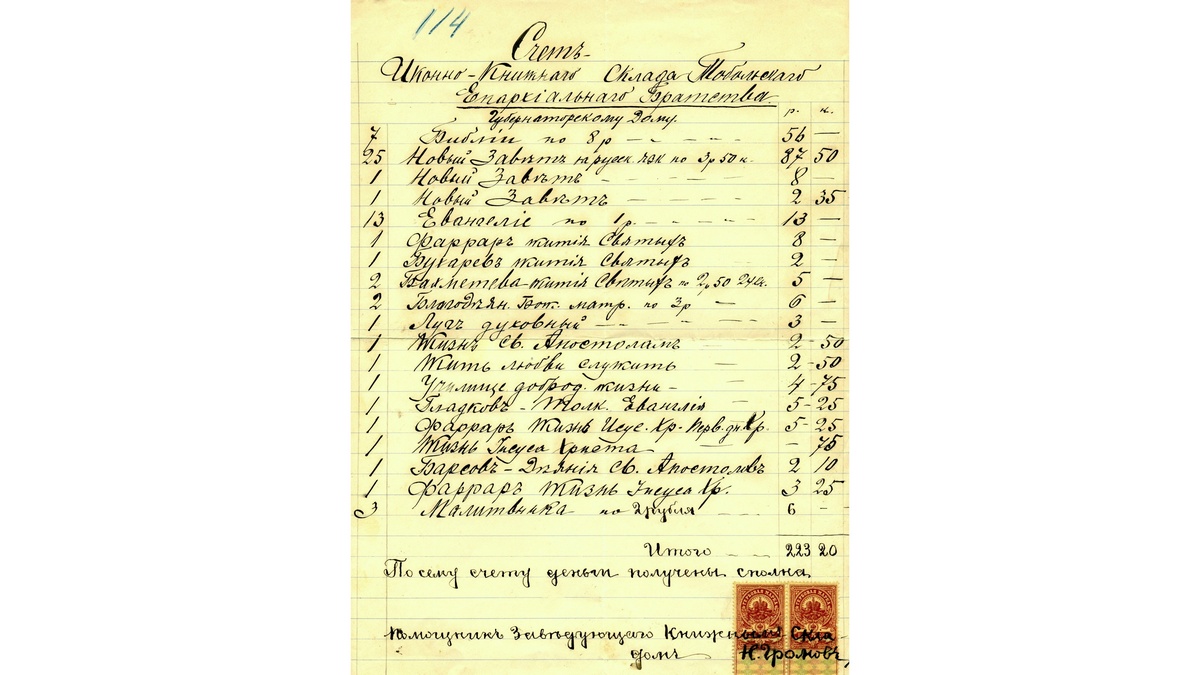 114
Счетъ
Иконно-Книжнаго Склада Тобольскаго
Епархіальнаго Братства.
Губернаторскому Дому.
р. к.
7 Библіи по 8 р - - - 56 —
25 Новый Завѣтъ на русск. язк по 3 р 50 к. 87 50
1 Новый Завѣтъ - - - - 8 —
1 Новый Завѣтъ - - - - 2 35
13 Евангеліе по 1 р - - - 13 —
1 Фарраръ житія Святыхъ 8 —
1 Бухаревъ житія Святыхъ - 2 —
2 Бахметева житія Святыхъ по 2,50 5 —
2 Благодѣян. Бож. матр. по 3 р - 6 —
1 Лугъ духовный - - - - 3 —
1 Жизнь Св. Апостоламъ - - 2 - 50
1 Жить любви служить - 2 - 50
1 Училище доброд. жизни - - 4 - 75
1 Гладковъ - Толк. Еванглія - 5 - 25
1 Фарраръ Жизнь Исус. Хр - Перв. дн Хр. 5 - 25
1 Жизнь Іисуса Христа - - 75
1 Барсовъ - Дѣянія Св. Апостоловъ 2 10
1 Фарраръ Жизнь Іисуса Хр. 3 25
3 Малитвника по 2 рубля 6 - -
Итого - - 223 20
По сему счету деньги получены сполна
Помощникъ Завѣдующаго Книжнымъ Скла-
домъ Н. Громовъ,